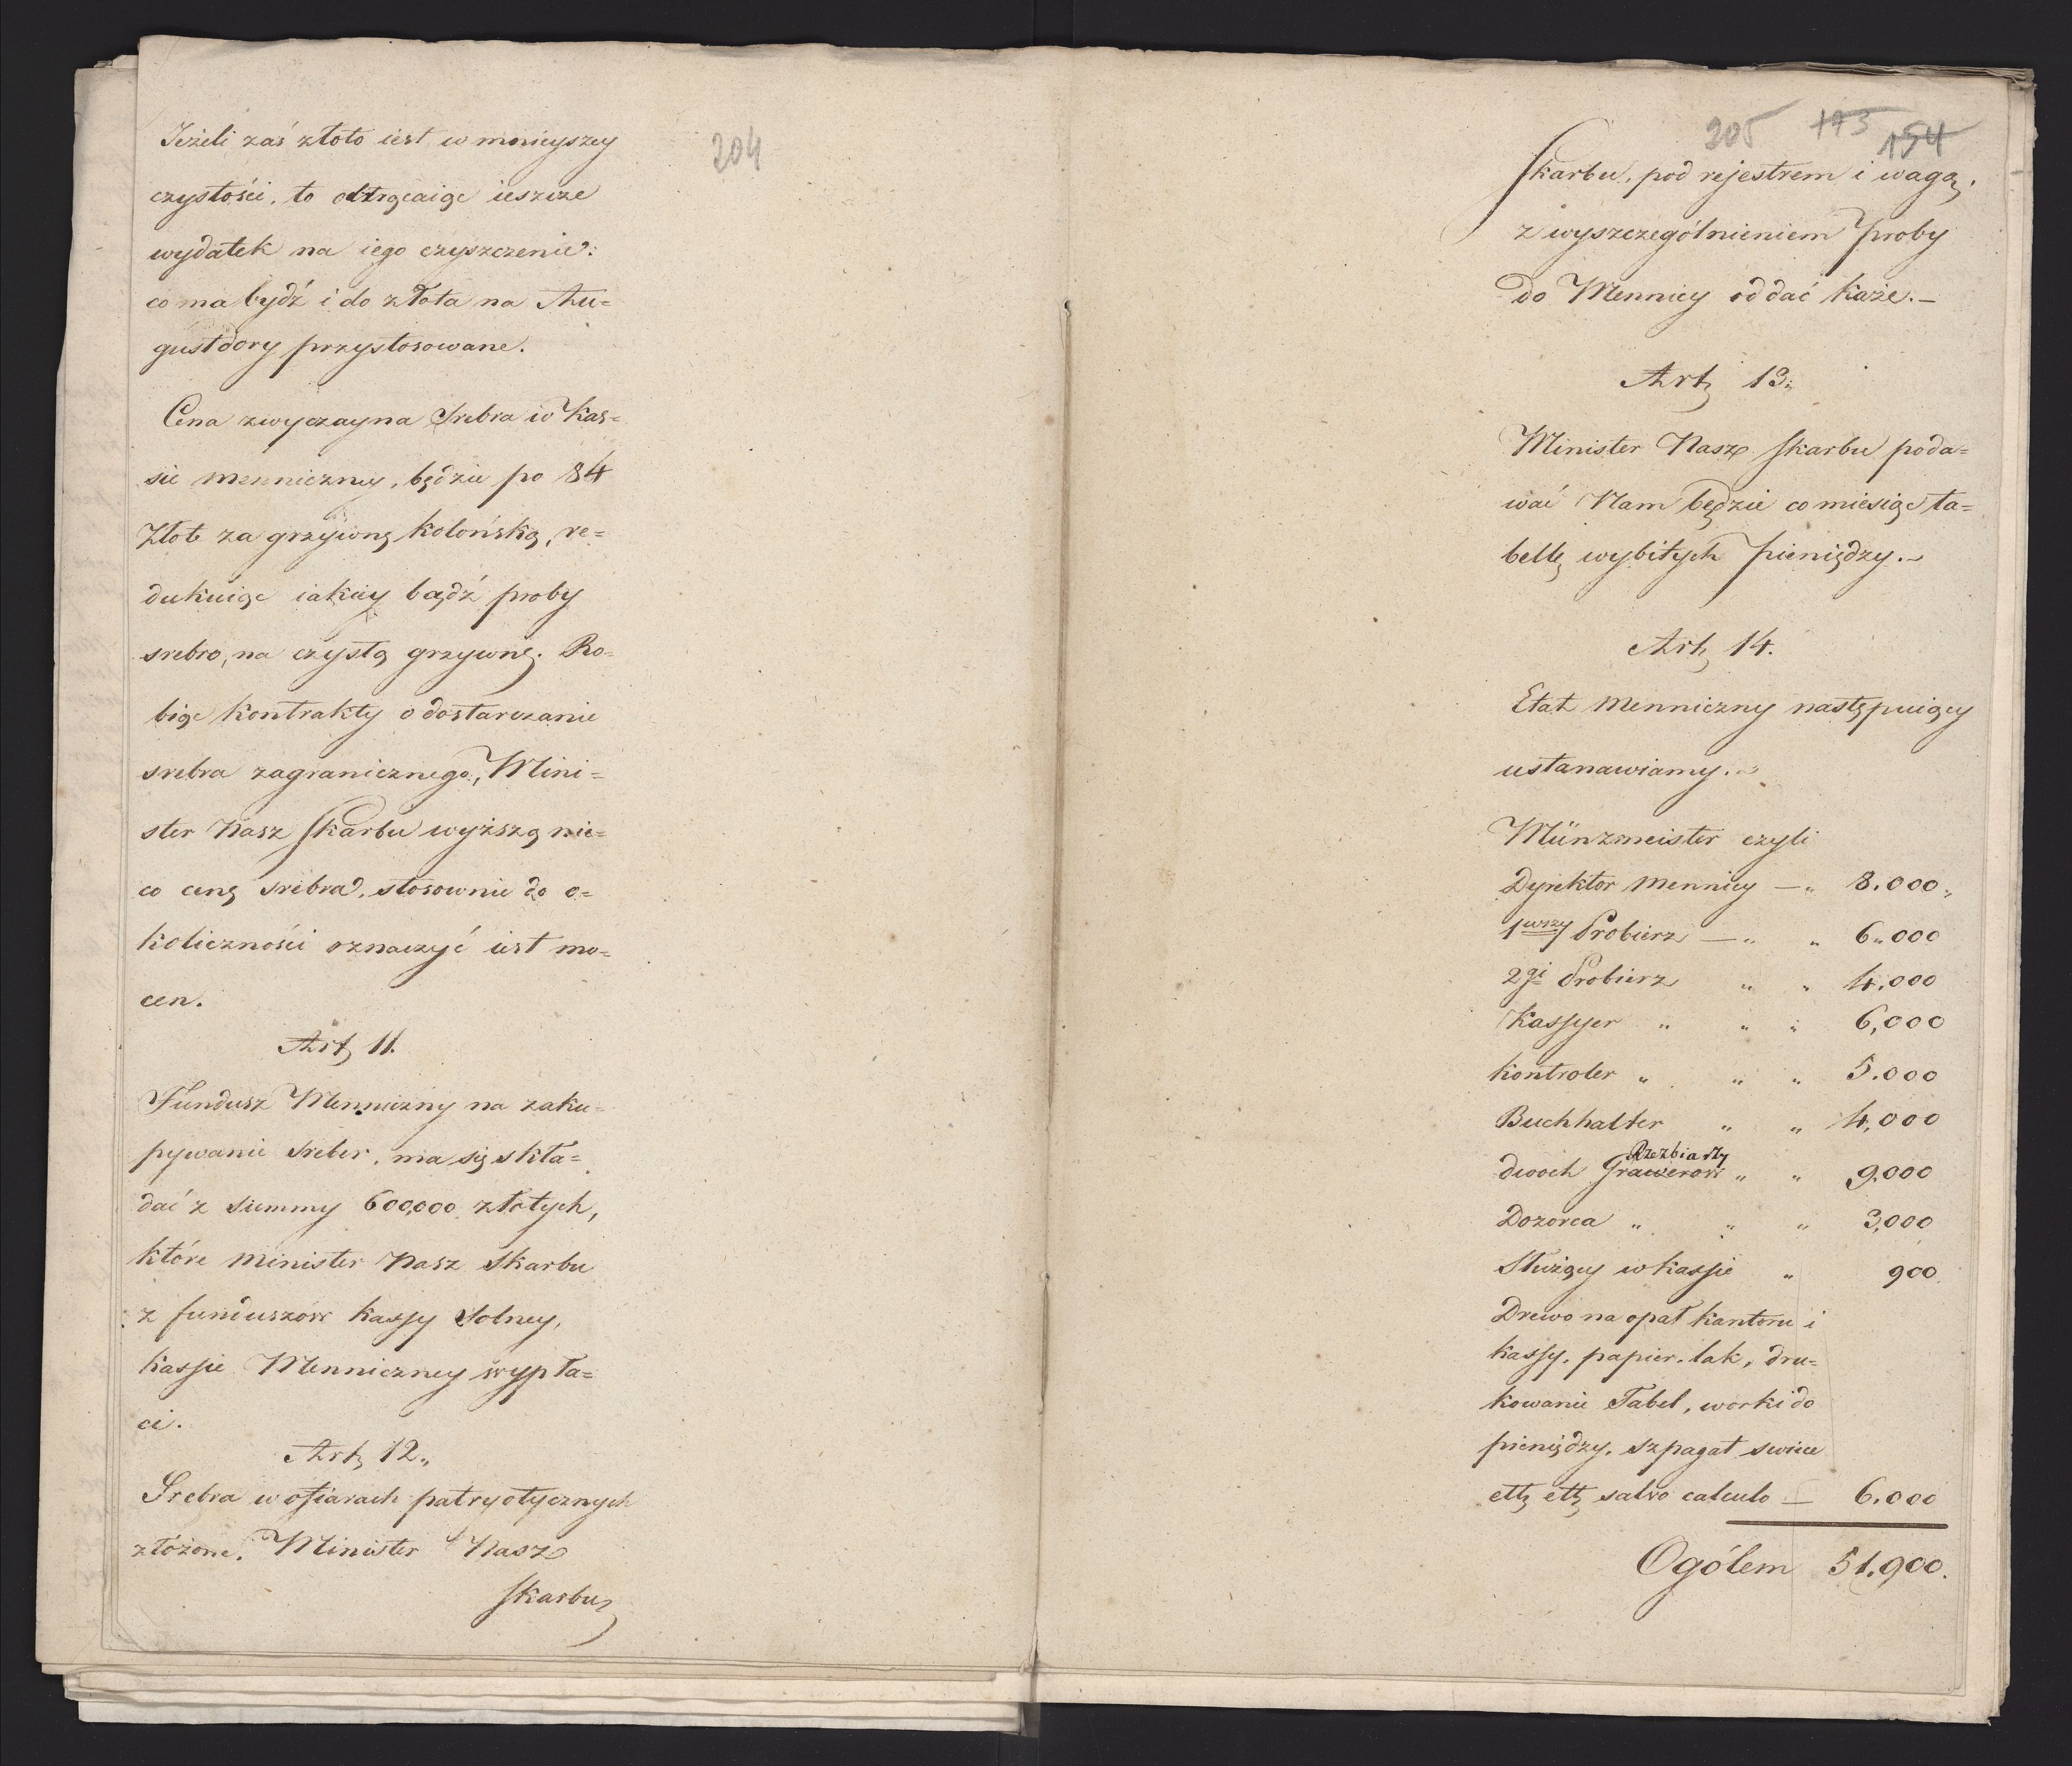 204
Jeżeli zaś złoto iest w mnieyszey
czystości, to odtrącaiąc ieszcze
wydatek na iego czyszczenie:
co ma bydź i do złota na Au=
gustdory przystosowane.
Cena zwyczayna srebra w Kas=
sie menniczney, będzie po 84
Złote za grzywnę kolońską, re=
dukuiąc iakiey bądź proby
srebro, na czystą grzywnę. Ro=
biąc kontrakty o dostarczanie
srebra zagranicznego, Mini=
ster Nasz Skarbu wyższą nie=
co cenę srebra, stosownie do o=
koliczności oznaczyć iest mo=
cen.
Art. 11.
Fundusz Menniczny na zaku=
pywanie sreber, ma się skła=
dać z summy 600,000 złotych,
które Minister Nasz Skarbu
z funduszów kassy Solney,
kassie Menniczney wypła=
ci.
Art. 12.
Srebra w ofiarach patryotycznych
złożone, Minister Nasz
Skarbu
205 173 154
Skarbu, pod rejestrem i wagą,
z wyszczególnieniem proby
do Mennicy oddać każe.—
Art. 13.
Minister Nasz Skarbu poda=
wać Nam będzie co miesiąc ta=
bellę wybitych pieniędzy.—
Art. 14.
Etat Menniczny następuiący
ustanawiamy.
Münzmeister czyli
Dyrektor mennicy — " 8.000
1wszy Probierz — " " 6.000
2gi Probierz " " 4.000
Kassyer " " " 6,000
Kontroler " " " 5.000
Buchhalter " " 4,000
Rzezbiarzy
dwoch Grawerow " " 9.000
Dozorca " " " 3,000
Służący w kassie " 900.
Drewo na opał kantoru i
kassy, papier, lak, dru=
kowanie Tabel, worki do
pieniędzy, szpagat swiece
ett. ett. salvo calculo — 6.000
Ogólem 51.900.